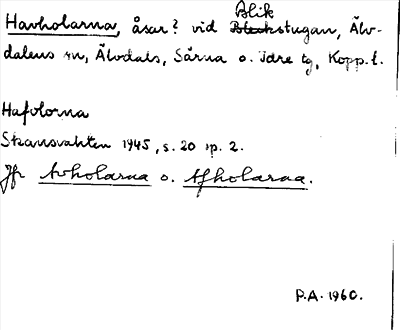 Havholarna, åsar? vid Blikstugan, Älv-
dalens sn, Älvdals, Särna o. Idre tg, Kopp. l.
Hafvlorna
Skansvakten 1945, s. 20 sp. 2.
Jfr Avholarna o. Afholarna.
P.A. 1960.